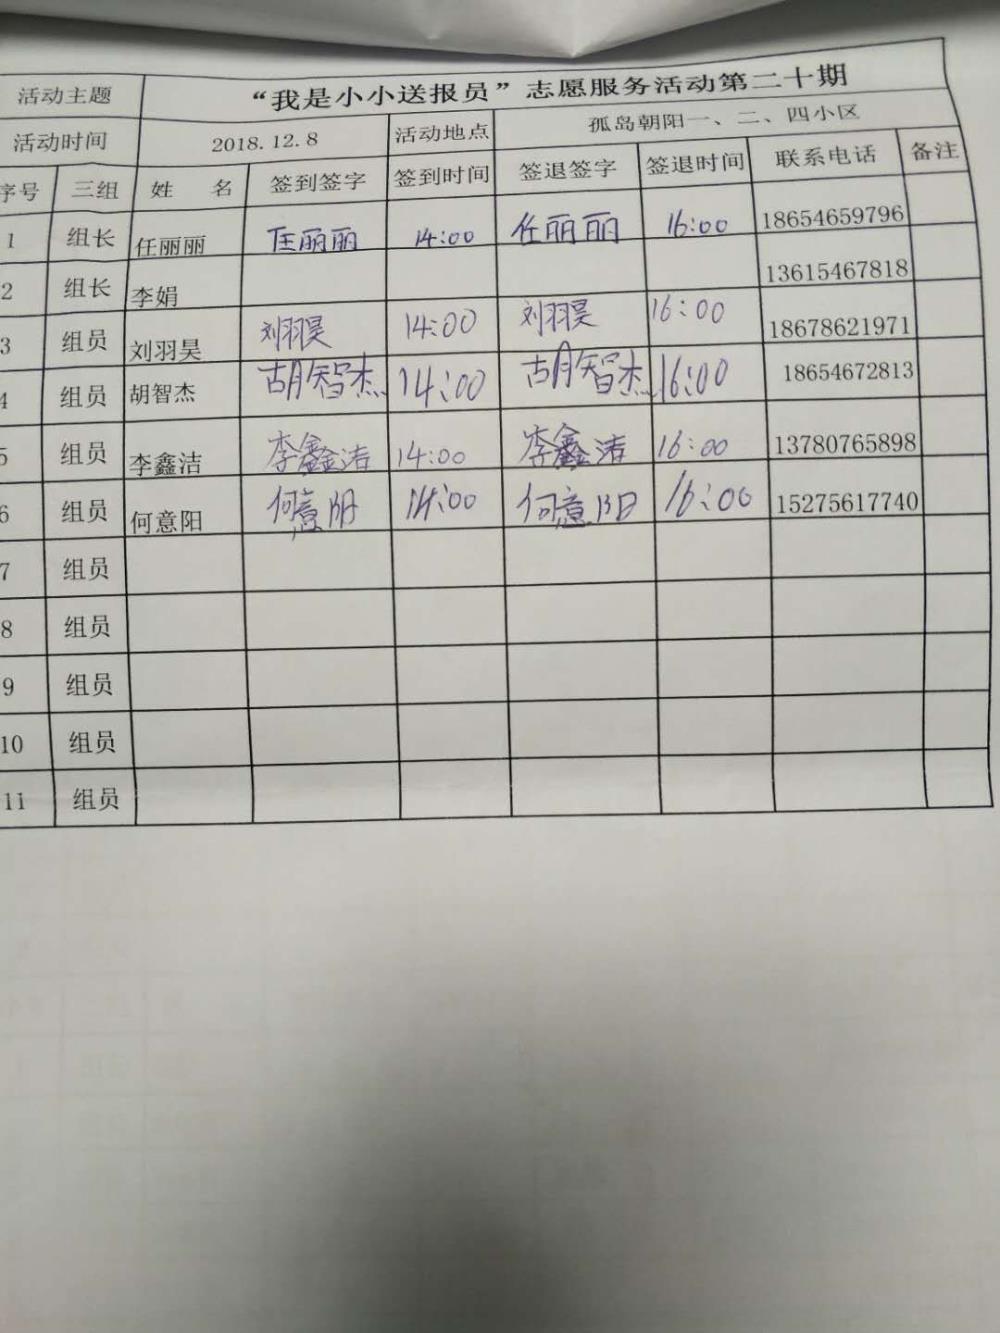 活动主题 “我是小小送报员”志愿服务活动第二十期
活动时间 2018.12.8 活动地点 孤岛朝阳一、二、四小区
序号 三组 姓 名 签到签字 签到时间 签退签字 签退时间 联系电话 备注
1 组长 任丽丽 任丽丽 14:00 任丽丽 16:00 18654659796
2 组长 李娟 13615467818
3 组员 刘羽昊 刘羽昊 14:00 刘羽昊 16:00 18678621971
4 组员 胡智杰 胡智杰 14:00 胡智杰 16:00 18654672813
5 组员 李鑫洁 李鑫洁 14:00 李鑫洁 16:00 13780765898
6 组员 何意阳 何意阳 14:00 何意阳 16:00 15275617740
7 组员
8 组员
9 组员
10 组员
11 组员